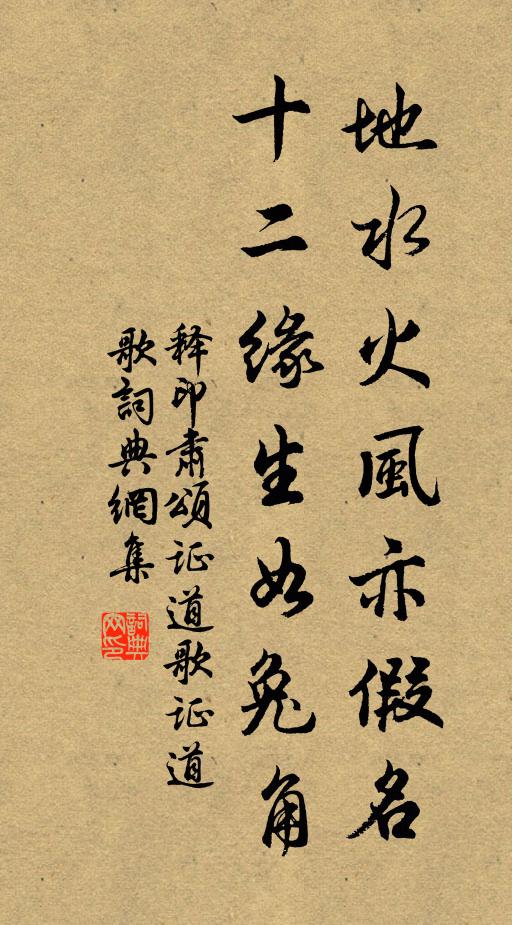 地水火風亦假名
十二緣生如兔角
释印肅頌证道歌证道
歌詞典網集
詞典網印